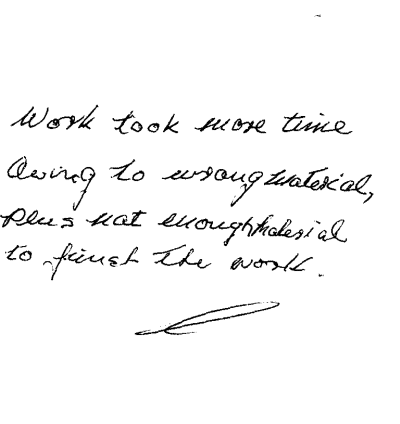 Work took more time
Owing to wrong material,
plus not enough material
to finish the work.